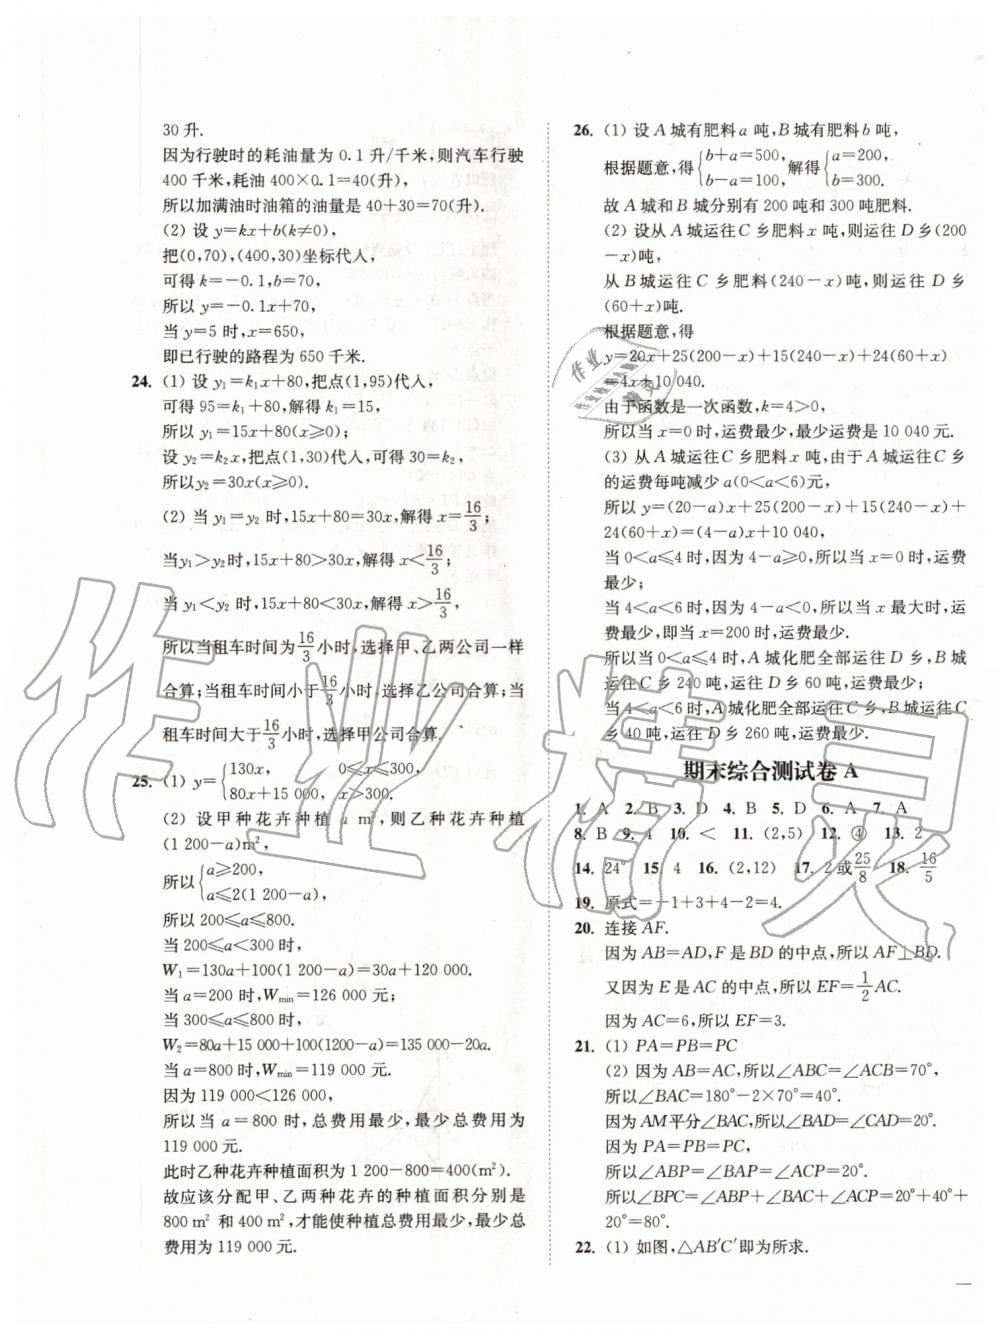 30升.
因为行驶时的耗油量为0.1升/千米,则汽车行驶
400千米,耗油400×0.1=40(升),
所以加满油时油箱的油量是40+30=70(升).
(2) 设y=kx+b(k≠0),
把(0,70),(400,30)坐标代入,
可得k=-0.1,b=70,
所以y=-0.1x+70,
当y=5时,x=650,
即已行驶的路程为650千米.
24. (1) 设y₁=k₁x+80,把点(1,95)代入,
可得95=k₁+80,解得k₁=15,
所以y₁=15x+80(x≥0);
设y₂=k₂x,把点(1,30)代入,可得30=k₂,
所以y₂=30x(x≥0).
(2) 当y₁=y₂时,15x+80=30x,解得x=16/3;
当y₁>y₂时,15x+80>30x,解得x<16/3;
当y₁<y₂时,15x+80<30x,解得x>16/3,
所以当租车时间为16/3小时,选择甲、乙两公司一样
合算;当租车时间小于16/3小时,选择乙公司合算;当
租车时间大于16/3小时,选择甲公司合算.
25. (1) y={130x, 0≤x≤300,
80x+15 000, x>300.
(2) 设甲种花卉种植a m²,则乙种花卉种植
(1 200-a)m²,
所以{a≥200,
a≤2(1 200-a)
所以200≤a≤800.
当200≤a<300时,
W₁=130a+100(1 200-a)=30a+120 000.
当a=200时,Wmin=126 000元;
当300≤a≤800时,
W₂=80a+15 000+100(1200-a)=135 000-20a.
当a=800时,Wmin=119 000元.
因为119 000<126 000,
所以当a=800时,总费用最少,最少总费用为
119 000元.
此时乙种花卉种植面积为1 200-800=400(m²).
故应该分配甲、乙两种花卉的种植面积分别是
800 m²和400 m²,才能使种植总费用最少,最少总
费用为119 000元.
26. (1) 设A城有肥料a吨,B城有肥料b吨,
根据题意,得{b+a=500,
b-a=100, 解得{a=200,
b=300.
故A城和B城分别有200吨和300吨肥料.
(2) 设从A城运往C乡肥料x吨,则运往D乡(200
-x)吨,
从B城运往C乡肥料(240-x)吨,则运往D乡
(60+x)吨.
根据题意,得
y=20x+25(200-x)+15(240-x)+24(60+x)
=4x+10 040.
由于函数是一次函数,k=4>0,
所以当x=0时,运费最少,最少运费是10 040元.
(3) 从A城运往C乡肥料x吨,由于A城运往C乡
的运费每吨减少a(0<a<6)元,
所以y=(20-a)x+25(200-x)+15(240-x)+
24(60+x)=(4-a)x+10 040,
当0<a≤4时,因为4-a≥0,所以当x=0时,运费
最少;
当4<a<6时,因为4-a<0,所以当x最大时,运
费最少,即当x=200时,运费最少.
所以当0<a≤4时,A城化肥全部运往D乡,B城
运往C乡240吨,运往D乡60吨,运费最少;
当4<a<6时,A城化肥全部运往C乡,B城运往C
乡40吨,运往D乡260吨,运费最少.
期末综合测试卷A
1. A 2. B 3. D 4. B 5. D 6. A 7. A
8. B 9. 4 10. < 11. (2,5) 12. ④ 13. 2
14. 24° 15. 4 16. (2,12) 17. 2或25/8 18. 16/5
19. 原式=-1+3+4-2=4.
20. 连接AF.
因为AB=AD,F是BD的中点,所以AF⊥BD.
又因为E是AC的中点,所以EF=1/2AC.
因为AC=6,所以EF=3.
21. (1) PA=PB=PC
(2) 因为AB=AC,所以∠ABC=∠ACB=70°,
所以∠BAC=180°-2×70°=40°.
因为AM平分∠BAC,所以∠BAD=∠CAD=20°.
因为PA=PB=PC,
所以∠ABP=∠BAP=∠ACP=20°.
所以∠BPC=∠ABP+∠BAC+∠ACP=20°+40°+
20°=80°.
22. (1) 如图,△AB′C′即为所求.
作业精灵